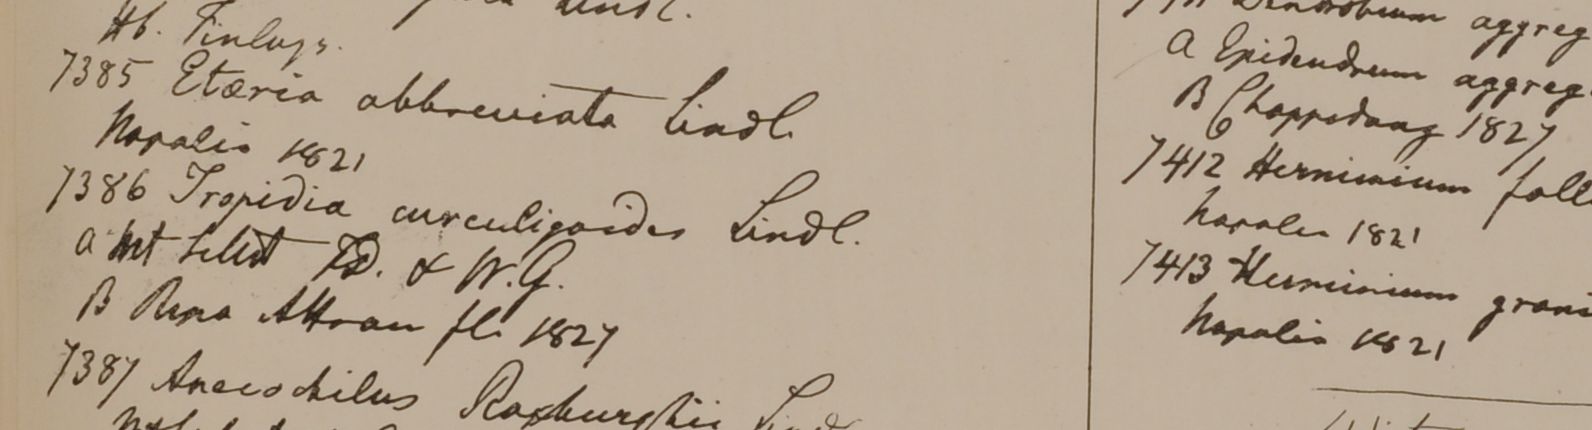 Lindl.
Hb. Finlays.
7385 Etæria abbreviata Lindl.
Napalia 1821
7386 Tropidia curculigoides Lindl.
a Mt Silhet F.D. & W.G.
B Attran fl. 1827
7387 Anecochilus Roxburghii Lind
aggreg
a Epidendrum aggreg
B Chappedong 1827
7412 Herminium fall
Napalia 1821
7413 Herminium grami
Napalia 1821